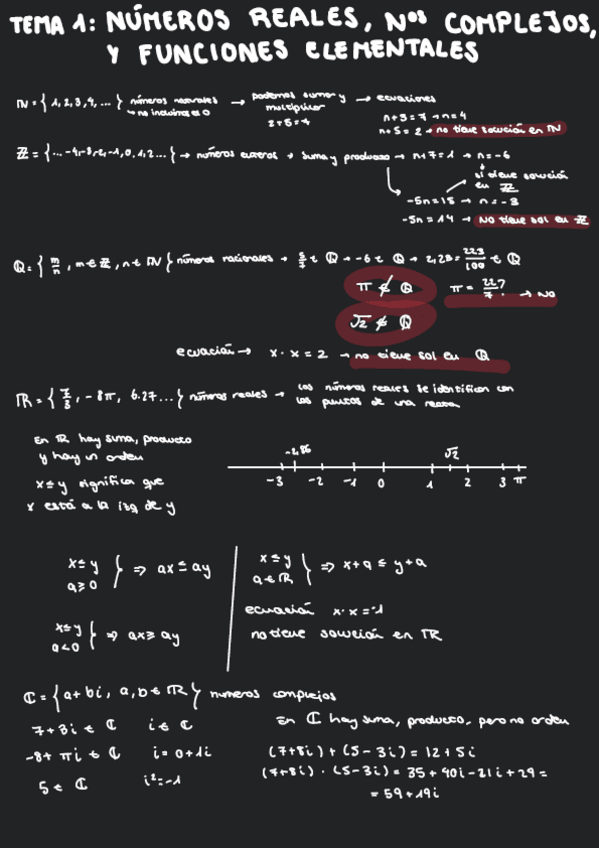 TEMA 1: NÚMEROS REALES, Nos COMPLEJOS,
Y FUNCIONES ELEMENTALES
ℕ = { 1, 2, 3, 4, ... } números naturales → podemos sumar y multiplicar → ecuaciones
↳ no incluimos el 0
2 + 5 = 7
n + 3 = 7 → n = 4
n + 5 = 2 → no tiene solución en ℕ
ℤ = { ... -4, -3, -2, -1, 0, 1, 2 ... } → números enteros → suma y producto → n + 7 = 1 → n = -6
sí tiene solución
en ℤ
-5n = 15 → n = -3
-5n = 14 → NO tiene sol en ℤ
ℚ = { m/n , m ∈ ℤ, n ∈ ℕ } números racionales → 5/7 ∈ ℚ → -6 ∈ ℚ → 2,23 = 223/100 ∈ ℚ
π ∉ ℚ
π = 22/7 ? → NO
√2 ∉ ℚ
ecuación → x · x = 2 → no tiene sol en ℚ
ℝ = { 7/3 , -8π, 6.27 ... } números reales → los números reales se identifican con
los puntos de una recta
En ℝ hay suma, producto
y hay un orden
x ≤ y significa que
x está a la izq de y
-2,86 √2
-3 -2 -1 0 1 2 3 π
x ≤ y
a ≥ 0 } ⇒ ax ≤ ay
x ≤ y
a ∈ ℝ } ⇒ x + a ≤ y + a
ecuación x · x = -1
no tiene solución en ℝ
x ≤ y
a < 0 } ⇒ ax ≥ ay
ℂ = { a + bi , a, b ∈ ℝ } números complejos
7 + 3i ∈ ℂ i ∈ ℂ
-8 + πi ∈ ℂ i = 0 + 1i
5 ∈ ℂ i² = -1
En ℂ hay suma, producto, pero no orden
(7 + 8i) + (5 - 3i) = 12 + 5i
(7 + 8i) · (5 - 3i) = 35 + 40i - 21i + 24 =
= 59 + 19i